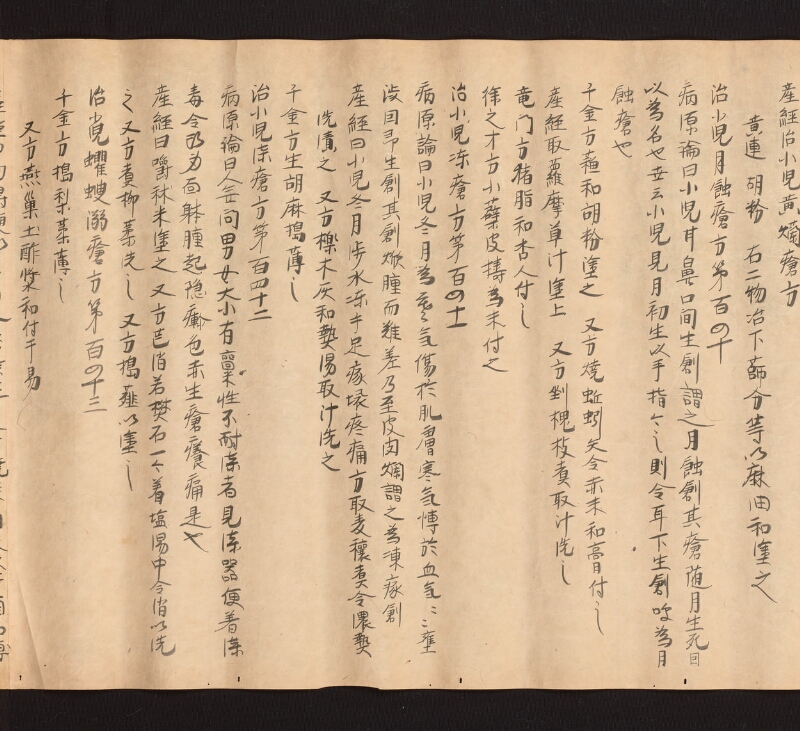 産經治小児黄爛瘡方
黄連 胡粉 右二物冶下篩分等以麻油和塗之
治小児月蝕瘡方第百四十
病源論曰小児耳鼻口間生創謂之月蝕創其瘡随月生死因
以為名也世云小児見月初生以手指々之則令耳下生創故為月
蝕瘡也
千金方 和胡粉塗之 又方焼蚯蚓矢令赤末和膏付之
産經取蘿摩草汁塗上 又方剉槐枝煮取汁洗之
竜門方猪脂和杏人付之
徐之才方小蘗皮擣為末付之
治小児凍瘡方第百四十一
病源論曰小児冬月為寒気傷於肌膚寒気慱於血気々壅
渋因即生創其創 腫而難差乃至皮肉爛謂之為凍瘃創
産經曰小児冬月歩氷凍手足瘃壊疼痛方取麦穰煮令濃熱
洗漬之 又方櫟木灰和熱湯取汁洗之
千金方生胡麻搗薄之
治小児漆瘡方第百四十二
病源論曰人無問男女大小有稟性不耐漆者見漆器便着漆
毒令 及面躰腫起隠 色赤生瘡痒痛是也
産經曰嚼秫米塗之 又方芒消若礬石一々着塩湯中令消以洗
之 又方煮柳葉洗之 又方搗薤以塗之
治小児蠼螋溺瘡方第百四十三
千金方搗梨葉薄之
又方燕巣土酢漿和付干易